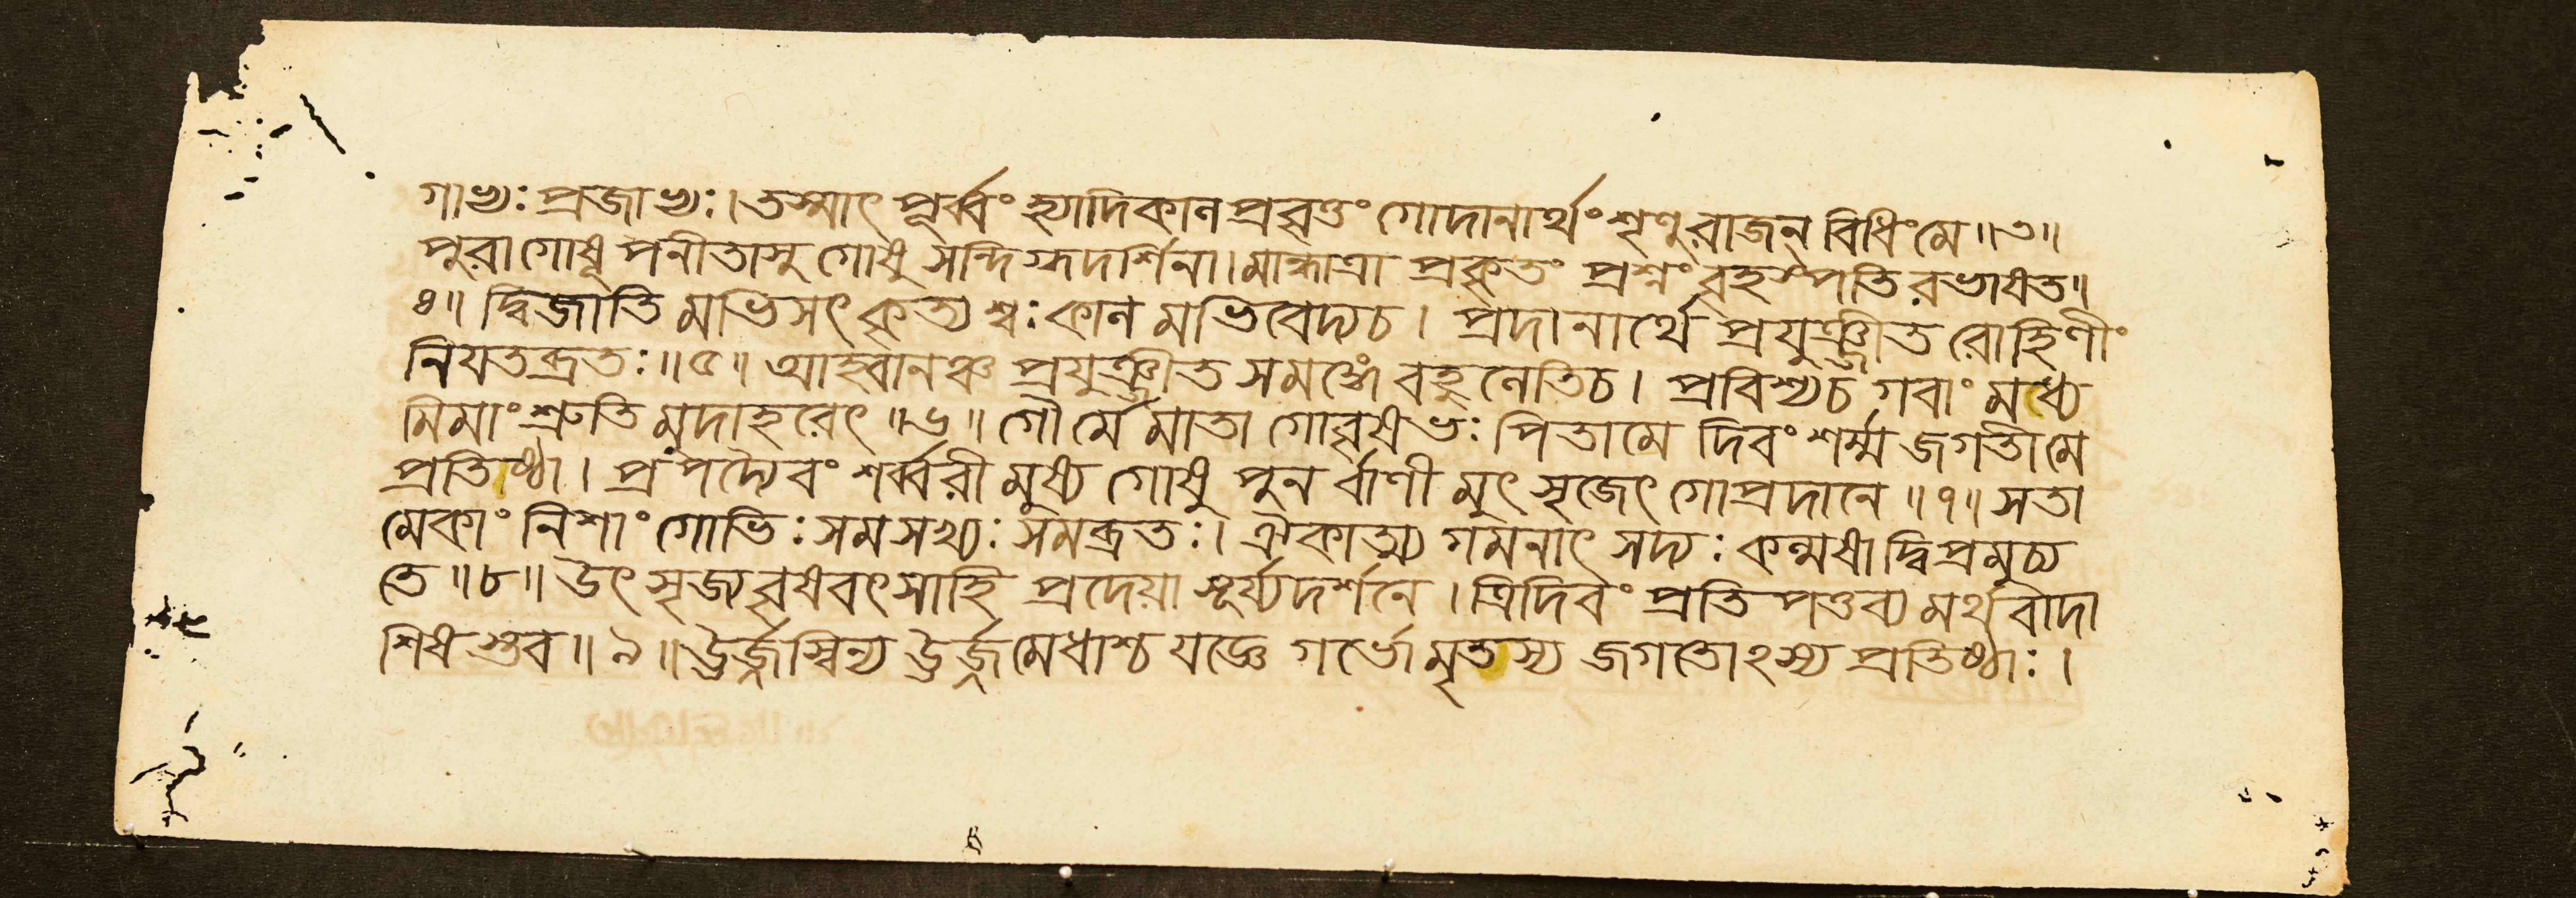 গাভ্যঃ প্রজাভ্যঃ। তস্মাৎ পূর্ব্বং হ্যাদিকান প্রবৃত্তং গোদানার্থং শৃণু রাজন্ বিধিং মে॥ ৩॥
পুরা গোষূ পনীতাসু গোষু সন্দিগ্দদর্শিনা। মান্ধাত্রা প্রকৃতং প্রশ্নং বৃহস্পতি রভাষত॥
৪॥ দ্বিজাতি মভিসৎ কৃত্য শ্বঃ কান মভিবেদ্যচ। প্রদানার্থে প্রযুঞ্জীত রোহিণীং
নিযতব্রতঃ॥ ৫॥ আহ্বানঞ্চ প্রযুঞ্জীত সমঙ্গে বহুনেতিচ। প্রবিশ্যচ গবাং মধ্যে
মিমাং শ্রুতি মুদাহরেৎ॥ ৬॥ গৌর্মে মাতা গোবৃষভঃ পিতামে দিবং শর্ম্ম জগতীমে
প্রতিষ্ঠা। প্রপদ্যৈবং শর্ব্বরী মুষ্য গোষু পুন র্বাণী মুৎ সৃজেৎ গোপ্রদানে॥ ৭॥ সতা
মেকাং নিশাং গোভিঃ সমসখ্যঃ সমব্রতঃ। ঐকাত্ম্য গমনাৎ সদ্যঃ কল্মষাদ্বিপ্রমুচ্য
তে॥ ৮॥ উৎ সৃজ্য বৃষবৎসাহি প্রদেয়া সূর্য্যদর্শনে। ত্রিদিবং প্রতি পত্তব্য মর্থবাদা
শিষ স্তব॥ ৯॥ ঊর্জ্জস্বিন্য ঊর্জ্জমেধাশ্চ যজ্ঞে গর্ভোমৃতস্য জগতোঽস্য প্রতিষ্ঠাঃ।